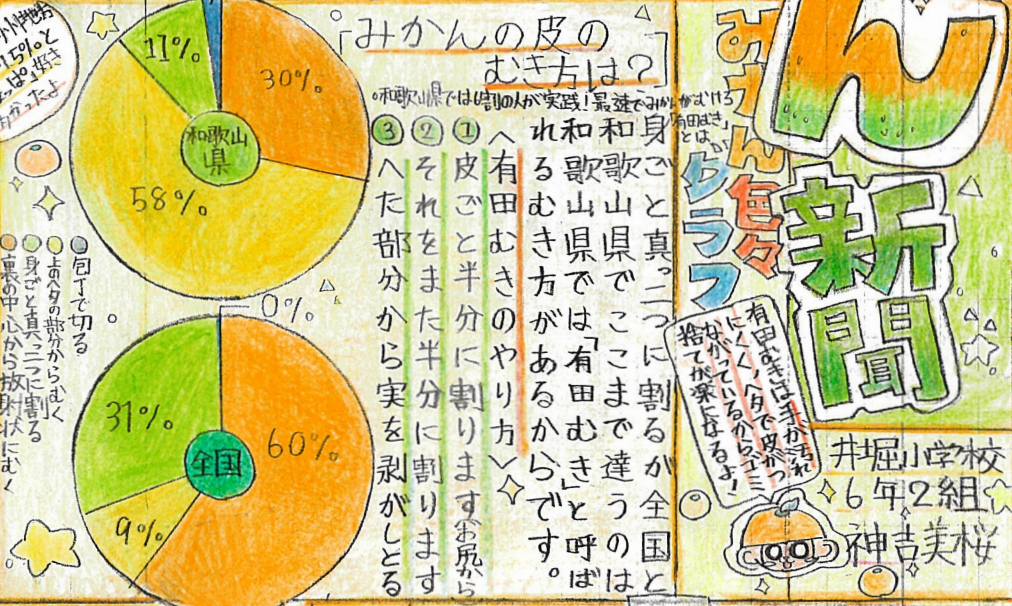 ん
新聞
井堀小学校
6年2組
神吉美桜
みかん色々
クラフ
有田むきは手が汚れ
にくく、ヘタで皮がつ
ながっているからゴミ
捨てが楽になるよ!
「みかんの皮の
むき方」は?
。和歌山県では6割の人が実践!最速でみかんがむける
「有田むき」
とは
身ごと真っ二つに割るが全国と
和歌山県でここまで違うのは
和歌山県では「有田むき」と呼ば
れるむき方があるからです。
<有田むきのやり方>
①皮ごと半分に割ります(お尻から
②それをまた半分に割ります
③へた部分から実を剥がしとる
11%
30%
和歌山
県
58%
0%
31%
60%
全国
9%
包丁で切る
上のヘタの部分からむく
身ごと真っ二つに割る
裏の中心から放射状にむく
九州地方
15%と
好き
かったよ